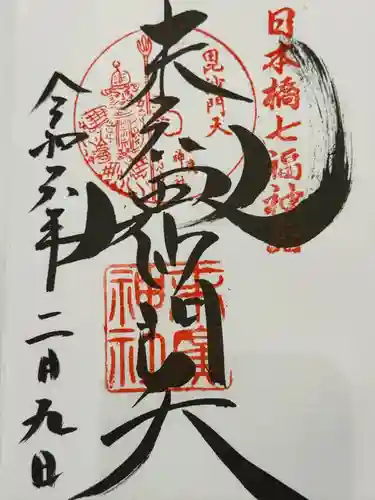 日本橋七福神詣
毘沙門天
末廣神社
末廣毘沙門天
令和六年
二月九日